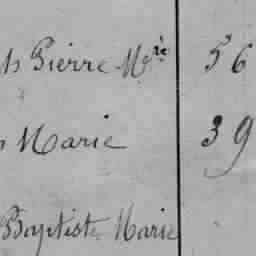 Pierre M.re 56
Marie 39
Baptiste Marie